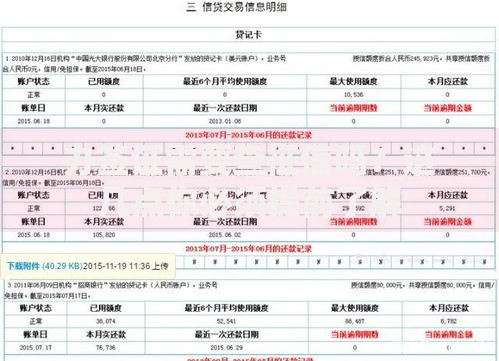 三 信贷交易信息明细
贷记卡
1.2010年12月16日机构“中国光大银行股份有限公司北京分行”发放的贷记卡（美元账户），业务号 授信额度折合人民币245,923元，共享授信额度折
合人民币0元，信用/免担保。截至2015年06月18日，
账户状态 已用额度 最近6个月平均使用额度 最大使用额度 本月应还款
正常 0 0 10,536 0
账单日 本月实还款 最近一次还款日期 当前逾期期数 当前逾期金额
2015.06.18 0 2013.01.08 0 0
2013年07月-2015年06月的还款记录
* * * * * * * * * * * * * * * * * * * * * * * *
2.2010年12月16日机构 发放的贷记卡 业务号 授信额度251,70 共享授信额度251,700元，
信用/免担保。截至2015年06月18日，
账户状态 已用额度 最近6个月平均使用额度 最大使用额度 本月应还款
正常 5,291
账单日 本月实还款 最近一次还款日期 当前逾期期数 当前逾期金额
2015.06.18 105,820 2015.06.02 0 0
2013年07月-2015年06月的还款记录
下载附件 (40.29 KB) 2015-11-19 11:36 上传
N N N N N N N N N
3.2011年06月09日机构“招商银行”发放的贷记卡（人民币账户），业务号 授信额度80,000元，共享授信额度80,000元，信用/免
担保。截至2015年07月17日，
账户状态 已用额度 最近6个月平均使用额度 最大使用额度 本月应还款
正常 38,074 52,541 86,487 6,782
账单日 本月实还款 最近一次还款日期 当前逾期期数 当前逾期金额
2015.07.17 76,736 2015.06.29 0 0